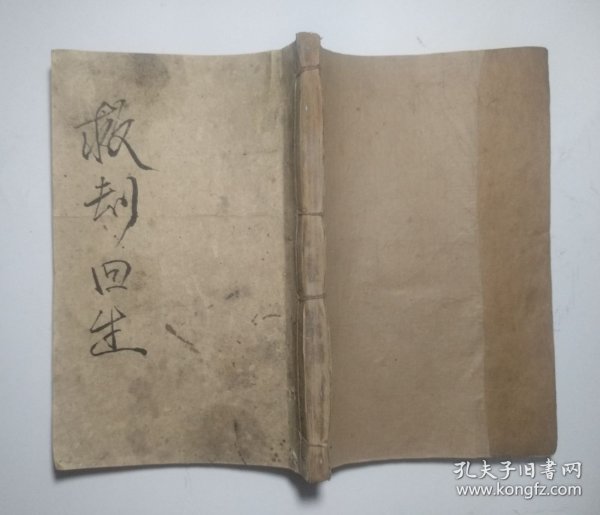 救刦回生
孔夫子旧书网
www.kongfz.com